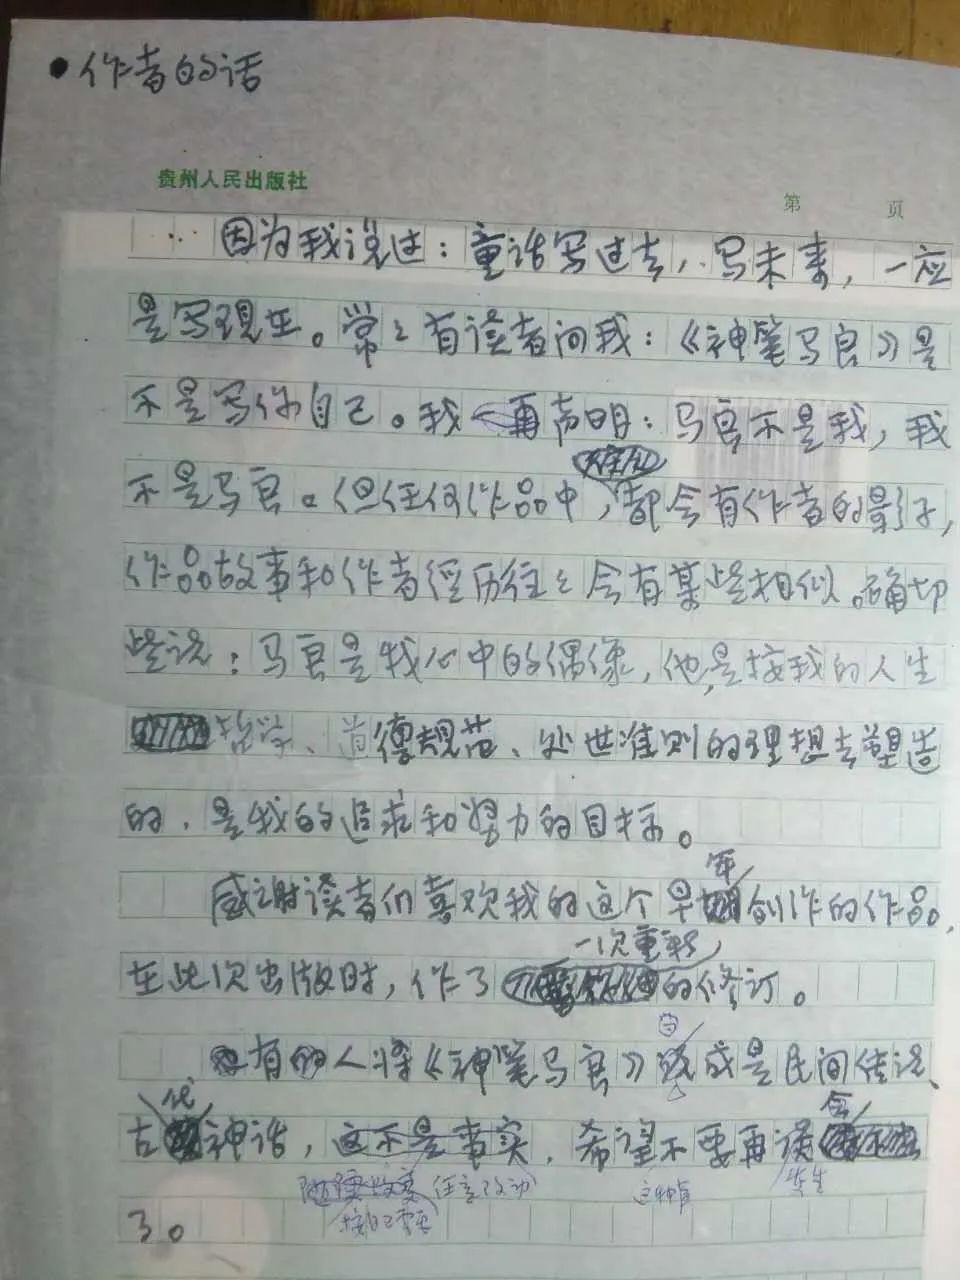 作者的话
贵州人民出版社
第 页
因为我说过：童话写过去，写未来，一应
是写现在。常々有读者问我：《神笔马良》是
不是写你自己。我一再声明：马良不是我，我
不是马良。但任何作品中，都会有作者的影子，
作品故事和作者经历往々会有某些相似。确切
些说：马良是我心中的偶像，他是按我的人生
哲学、道德规范、处世准则的理想去塑造
的，是我的追求和努力的目标。
年
感谢读者们喜欢我的这个早创作的作品，
一次重新
在此次出版时，作了的修订。
有的人将《神笔马良》改成是民间传说、
代
古神话，这不是事实，希望不要再误会
任意改动
按自己需要
了。